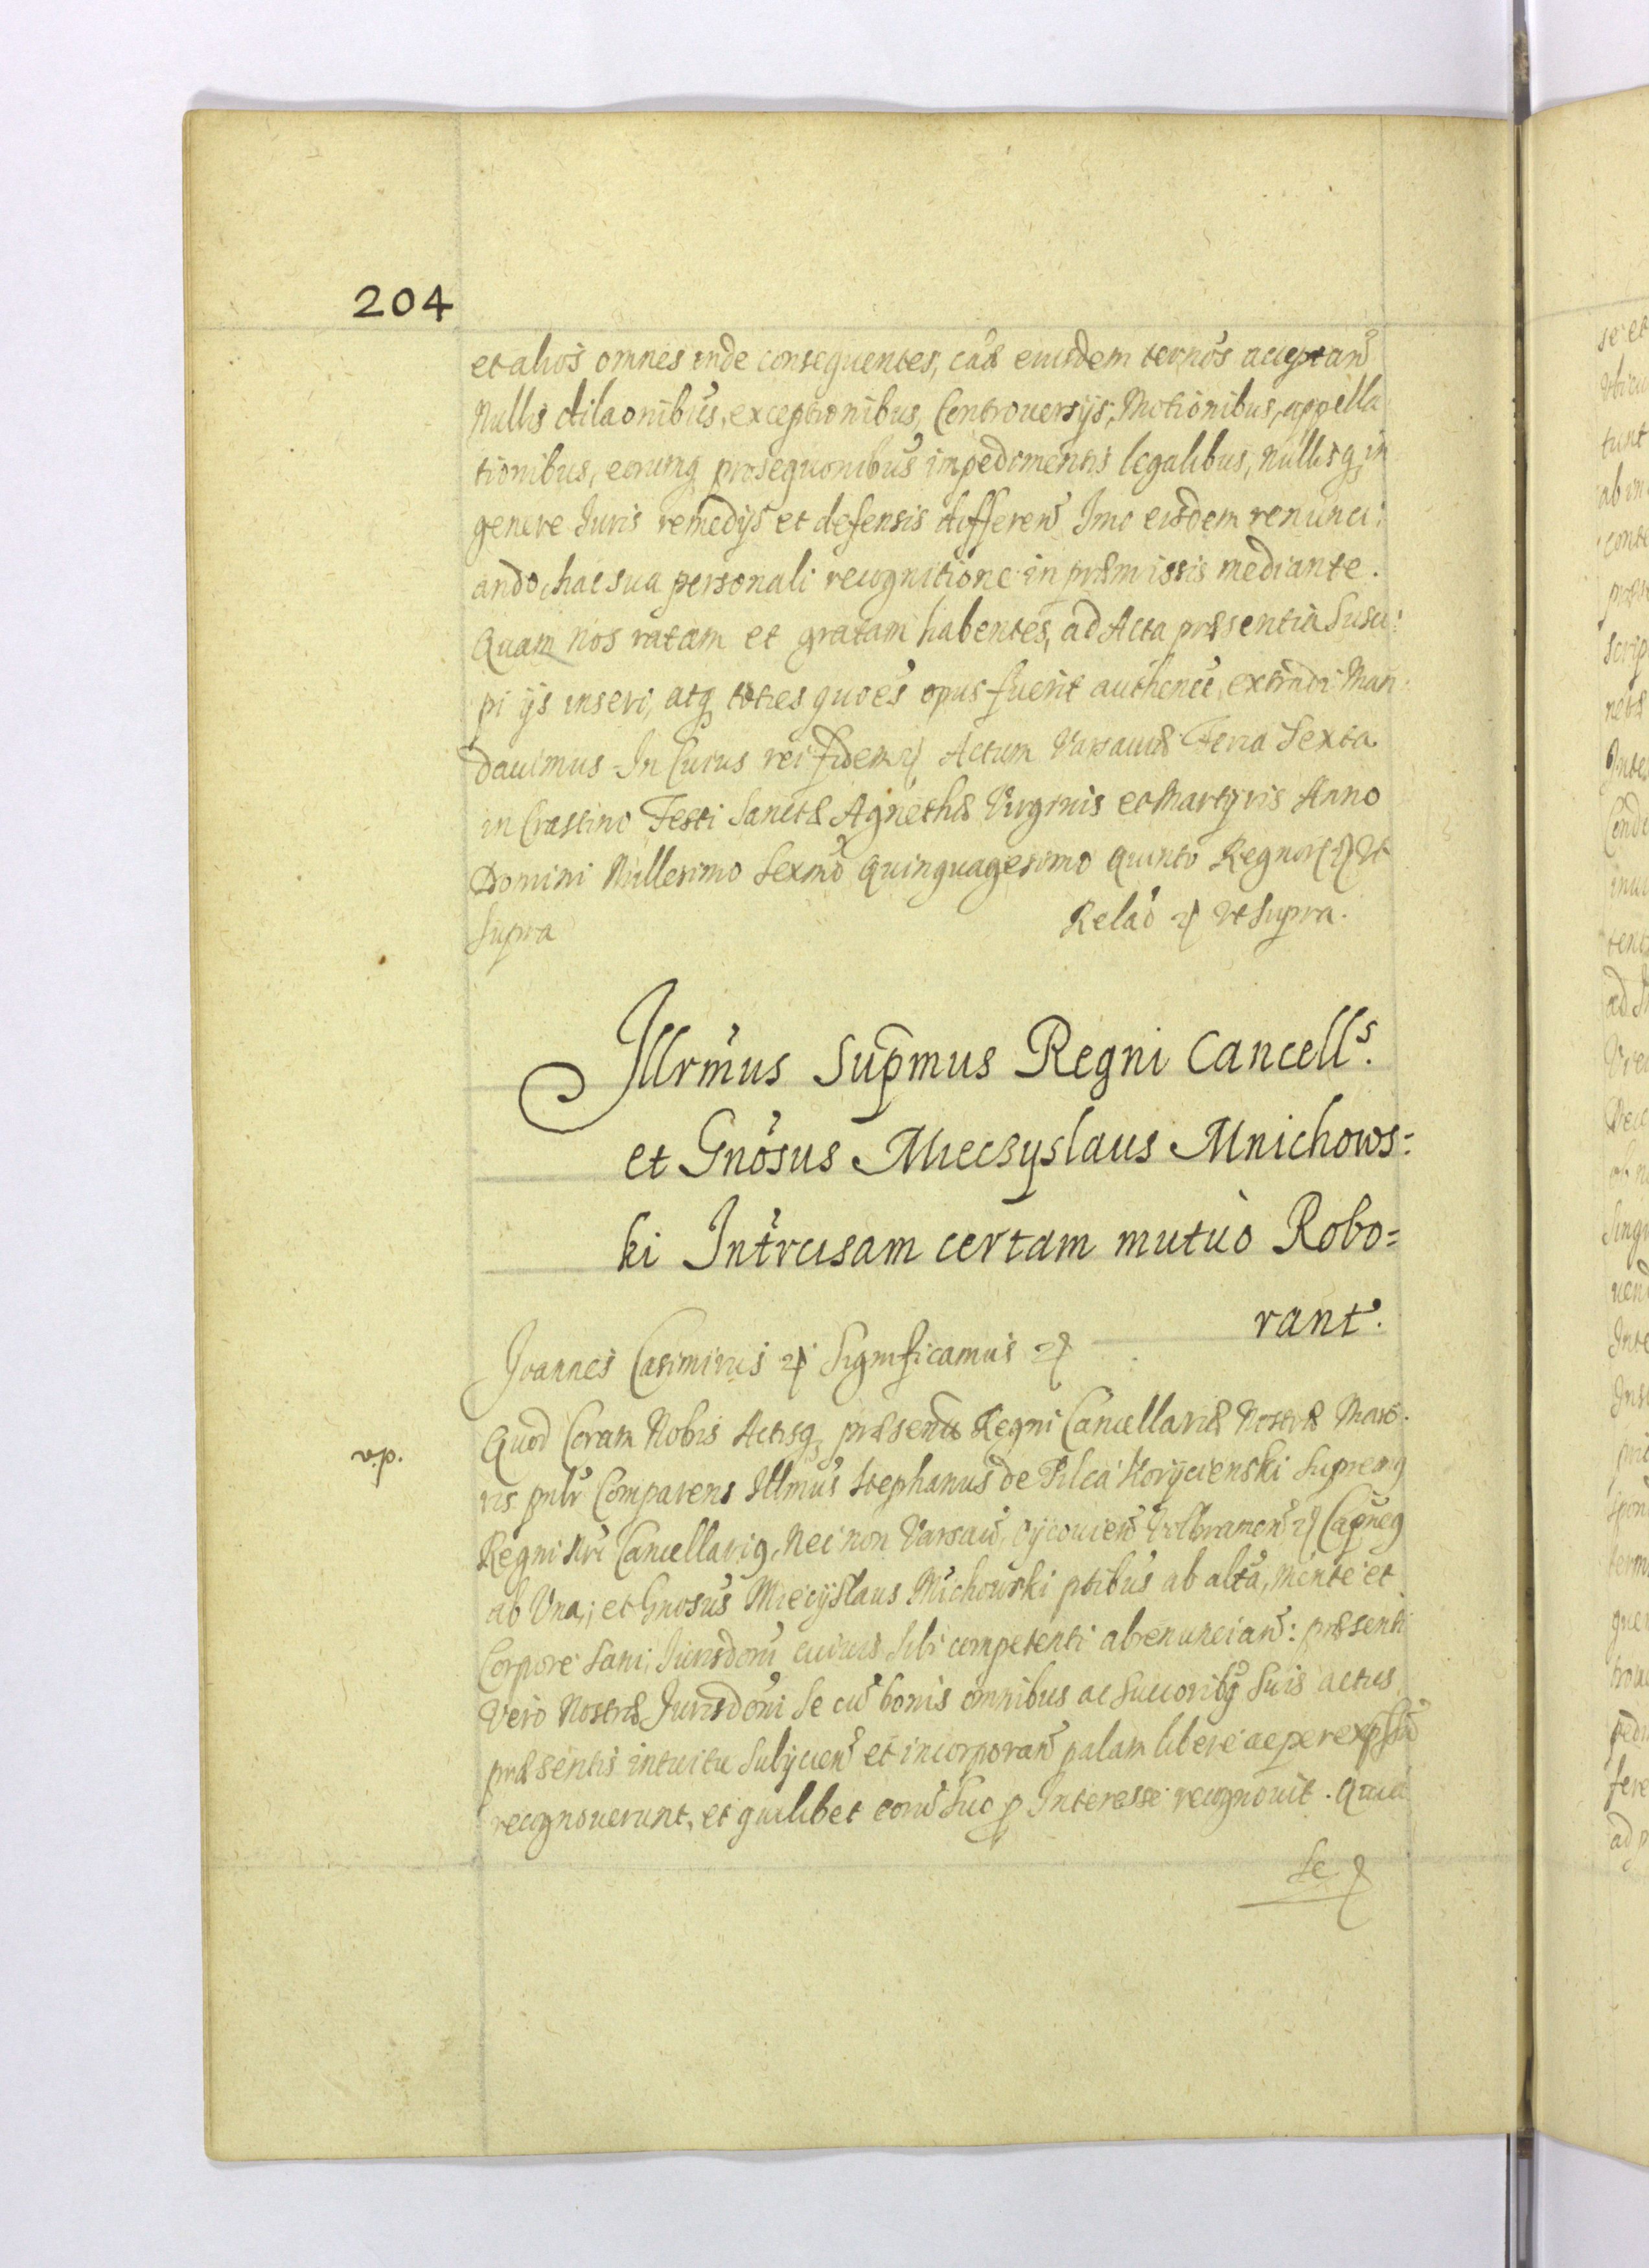 204
et alios omnes inde consequentes, cãae eiusdem ternós acceptan̄
Nullis dilaonibus, exceptionibus, Controuersijs, Motionibus, appella
tionibus, eorumq prosequonibus impedimentis legalibus, nullisq in
genere Juris remedijs et defensis differen̄ Imo eisdem renunci:
ando, hac sua personali recognitione in præmissis mediante.
Quam Nos ratam et gratam habentes, ad Acta præsentia Susci:
pi ijs inseri, atq toties quoẽs opus fuerit authencẽ, extradi Man
dauimus In Cuius rei fidem ꝛ Actum Varsauiæ Feria Sexta
in Crastino Festi Sanctæ Agnethæ Virginis et Martyris Anno
Domini Millesimo Sexmõ Quinquagesimo Quinto Regnor ꝛ Vt
Supra Relaõ ꝛ Vt Supra.
Jllrm̃us Sup̃mus Regni Cancellˢ.
et Gnõsus Mieczyslaus Mnichows:
ki Int̃rcisam certam mutuò Robo=
rant.
Joannes Casimirus ꝛ Significamus ꝛ
v.p.
Quod Coram Nobis Actisq præsentis Regni Cancellariæ Nostræ Maio:
ris pnlr Comparens Illmus Stephanus de Pilca Koryciénski Supremꝯ
Regni Nri Cancellariꝯ, Nec non Varsauiẽ, Oycouien̄ Volbramen̄ ꝛ Capneꝯ
ab Vna; et Gnosus Miecyslaus Michowski ptibus ab alta, mente et
Corpore Sani, Jurisdoni cuiuis sibi competenti abrenuncian̄: præsenti
Vero Nostræ Jurisdoni Se cũ bonis omnibus ac Succoribꝯ Suis actus
præsentis intuitu Subijcien̄ et incorporan̄ palam libere ac per expssũ
recognouerunt, et quilibet eorũ suo ꝓ Interesse recognouit. Quia
Se ꝛ